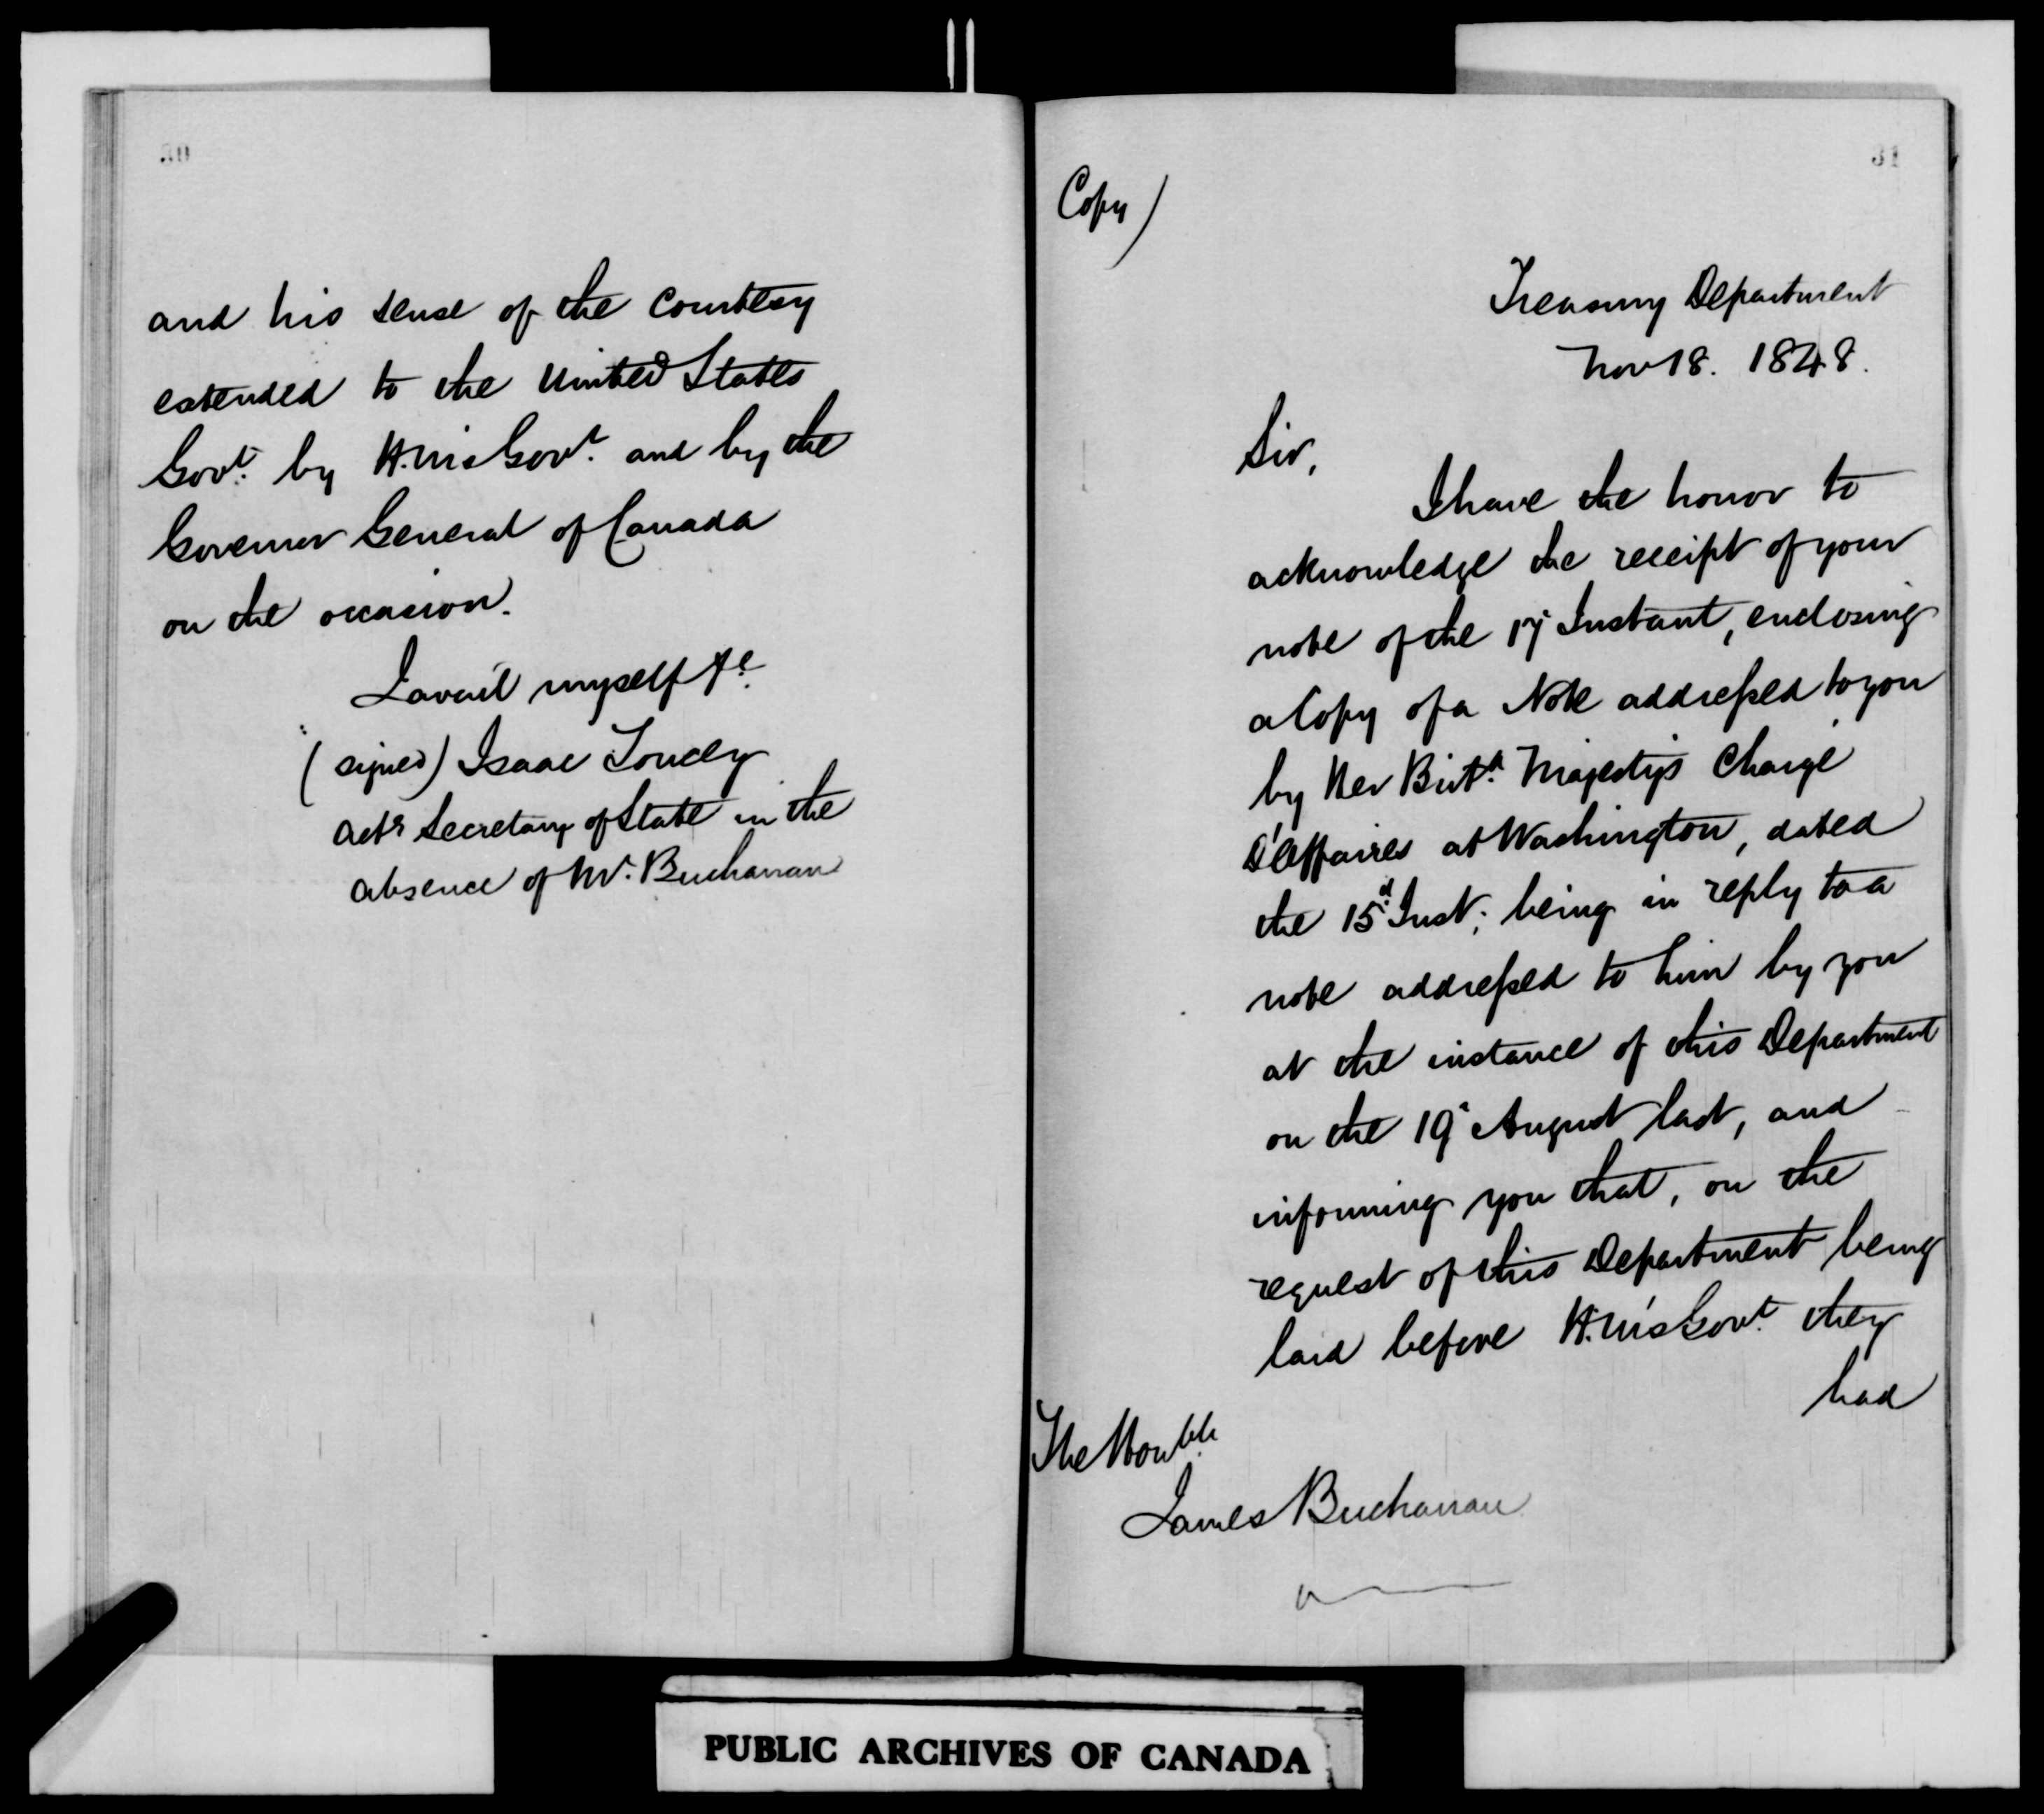 30
and his sense of the courtesy
extended to the United States
Govt. by H.M's Govt. and by the
Governor General of Canada
on the occasion.
I avail myself &c.
(signed) Isaac Toucey
Actg Secretary of State in the
absence of Mr. Buchanan
31
Copy)
Treasury Department
Nov 18. 1848.
Sir,
I have the honor to
acknowledge the receipt of your
note of the 17 Instant, enclosing
a Copy of a Note addressed to you
by Her Brita. Majesty's Chargé
D'Affaires at Washington, dated
the 15d Inst; being in reply to a
note addressed to him by you
at the instance of this Department
on the 19 August last, and
informing you that, on the
request of this Department being
laid before H.M's Govt. they
had
The Honble.
James Buchanan
PUBLIC ARCHIVES OF CANADA